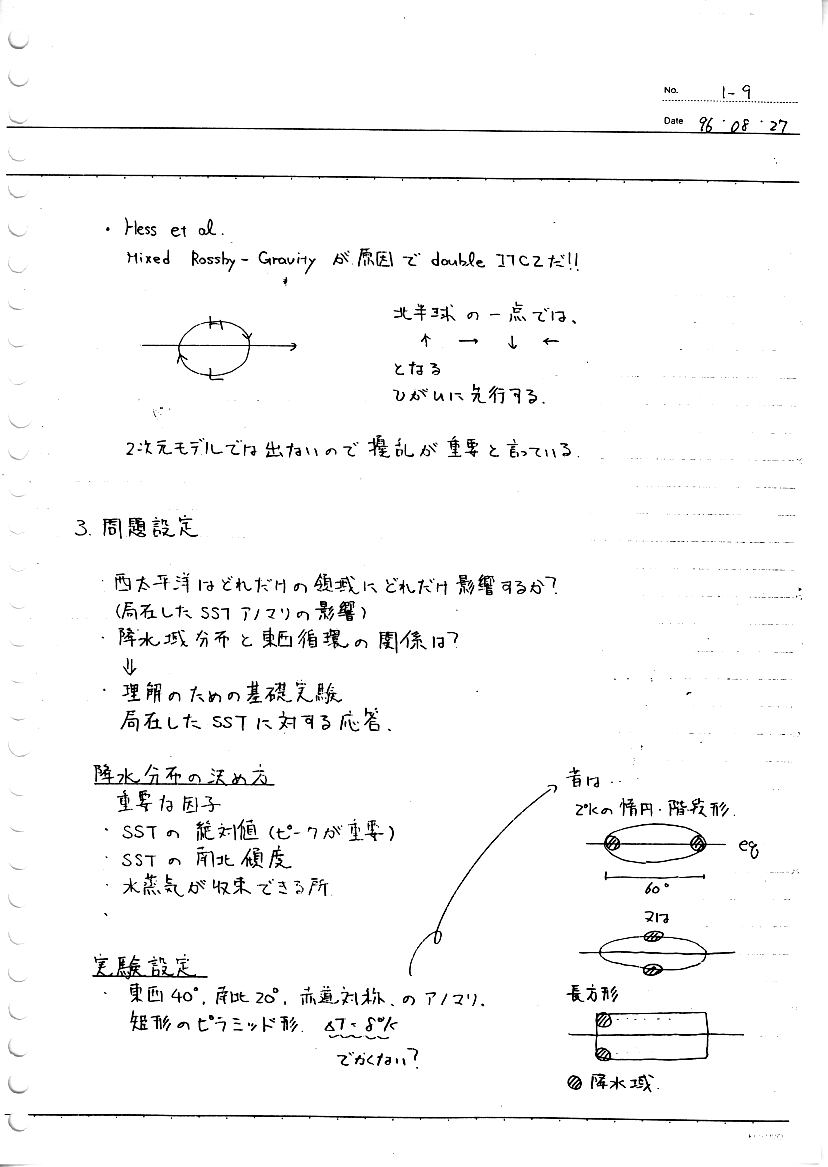 No. 1-9
Date 96・08・27
・Hess et al.
Mixed Rossby-Gravity が原因で double ITCZだ!!
H
L
北半球の一点では、
↑ → ↓ ←
となる
ひがしに先行する.
2次元モデルでは出ないので擾乱が重要と言っている.
3. 問題設定
・西太平洋はどれだけの領域にどれだけ影響するか?
(局在したSSTアノマリの影響)
・降水域分布と東西循環の関係は?
⇓
・理解のための基礎実験
局在したSSTに対する応答.
降水分布の決め方
重要な因子
・SSTの絶対値(ピークが重要)
・SSTの南北傾度
・水蒸気が収束できる所
・
昔は…
2°Kの楕円・階段形.
eq
60°
又は
長方形
降水域.
実験設定
・東西40°, 南北20°, 赤道対称、のアノマリ.
矩形のピラミッド形. ΔT=8°K
でかくない?